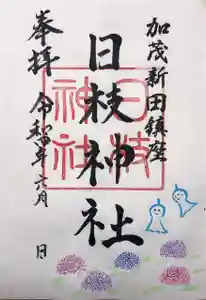 加茂新田鎮座
日枝神社
日枝神社
奉拝
令和四年六月 日